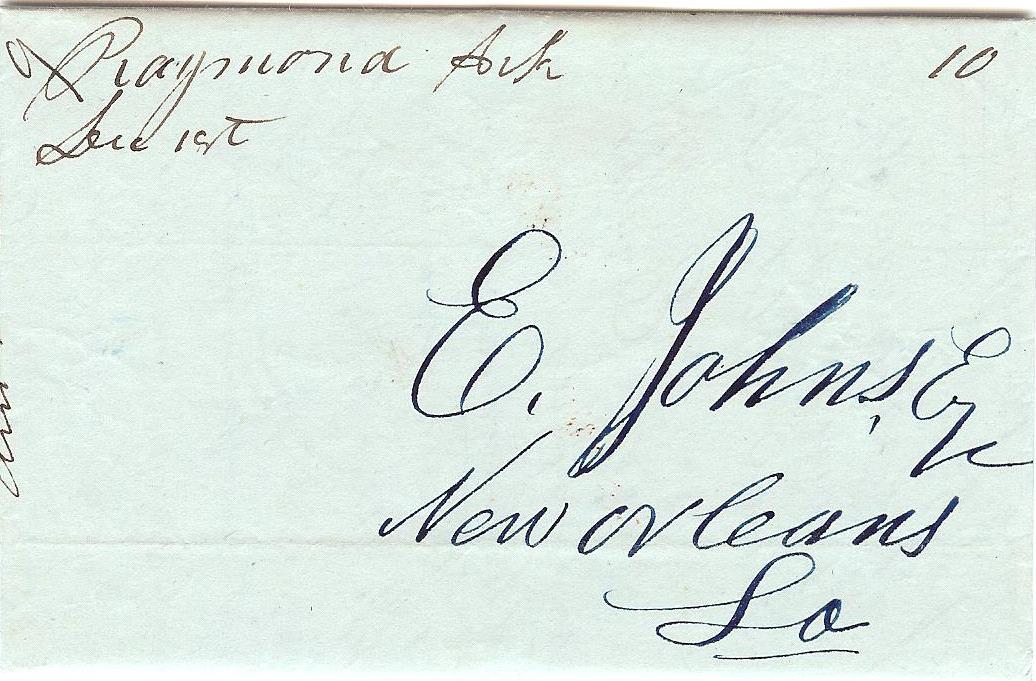 Raymond Ark 10
Dec 1st
E. Johns, Esq
New orleans
La